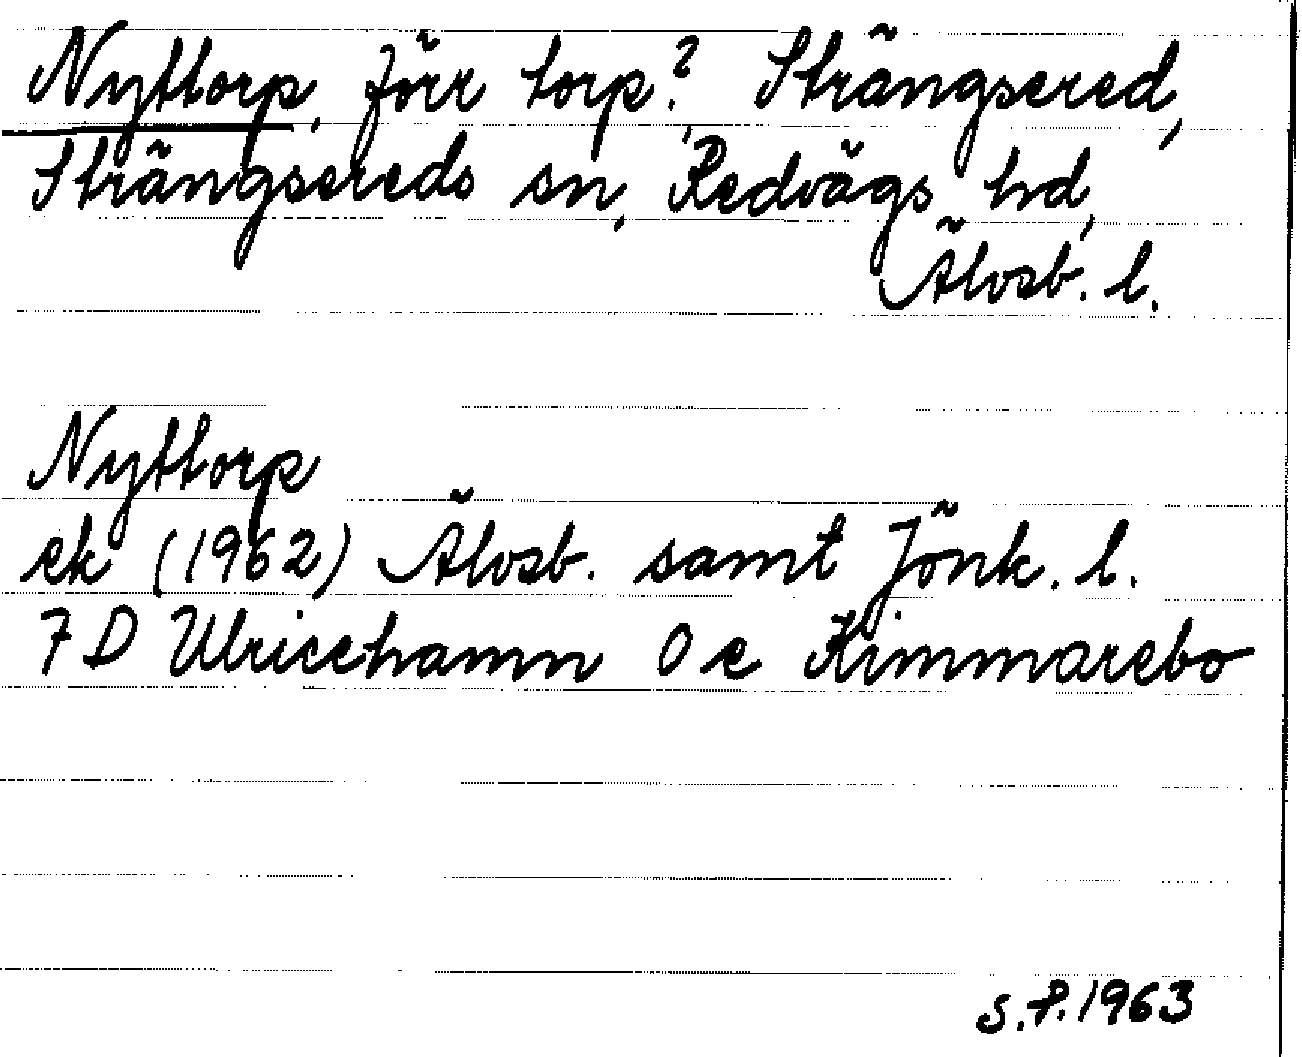 Nyttorp, förr torp?, Strängsered,
Strängsereds sn, Redvägs hd,
Älvsb. l.
Nyttorp
ek (1962) Älvsb. samt Jönk. l.
7 D Ulricehamn 0 e Kimmarebo
S.P. 1963